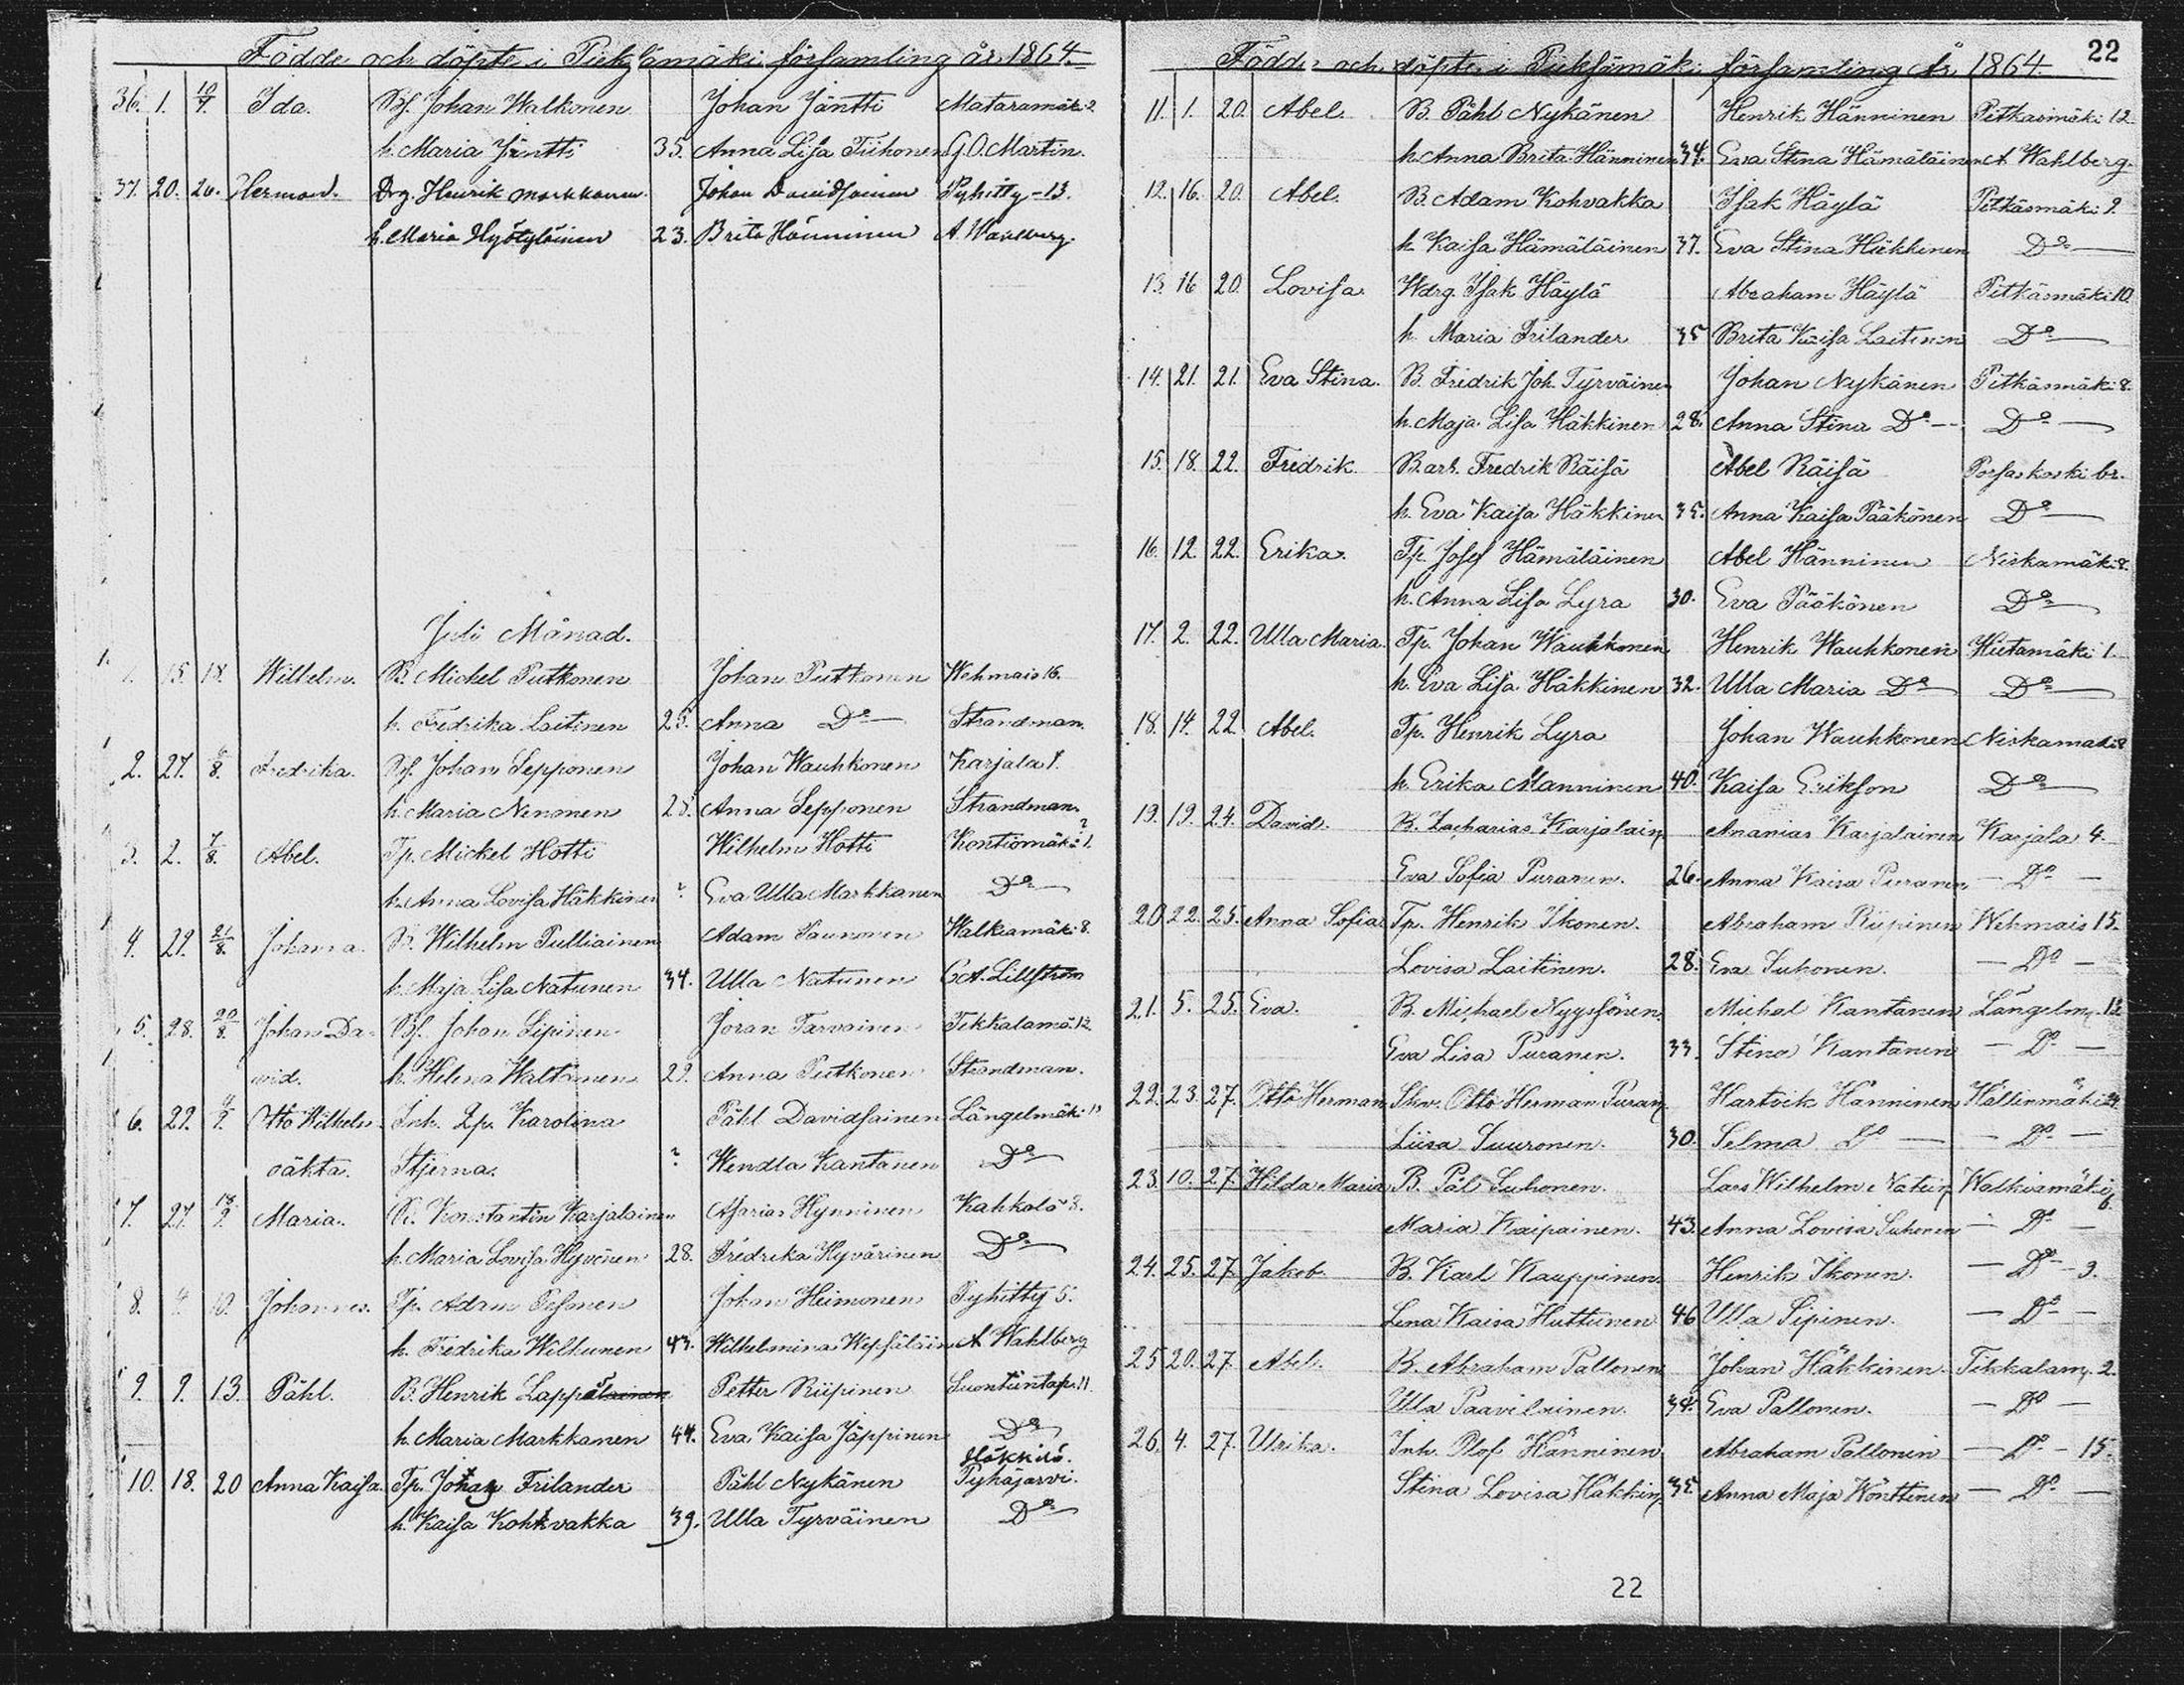 Födde och döpte i Pieksämäki församling år 1864.
36. 1. 10/7. Ida. Bf. Johan Walkonen Johan Jäntti Mataramäki 2
h. Maria Jäntti 35. Anna Lisa Tiihonen G.O. Martin.
37. 20. 26. Herman. Drg. Henrik Markkanen Johan Davidsainen Pyhitty - 13.
h. Maria Hyötyläinen 23. Brita Hänninen A. Wahlberg.
Juli Månad.
1. 15. 18. Wilhelm. B. Michel Putkonen Johan Putkonen Wehmais 16.
h. Fredrika Laitinen 25. Anna Do Strandman.
2. 27. /8. Fredrika. Bf. Johan Sepponen Johan Wauhkonen Karjala 1.
h. Maria Nenonen 28. Anna Sepponen Strandman.
3. 2. 7/8. Abel. Tp. Mickel Hotti Wilhelm Hotti Kontiomäki 1. ?
h. Anna Lovisa Häkkinen ? Eva Ulla Markkanen Do
4. 29. 21/8. Johanna. B. Wilhelm Pulliainen Adam Paunonen Walkiamäki 8.
h. Maja Lisa Natunen 34. Ulla Natunen C.A. Lillström
5. 28. 20/8. Johan Da- Bf. Johan Sipinen Johan Tarvainen Tikkalamä. 12
vid. h. Helena Waltonen 29. Anna Putkonen Strandman.
6. 29. 4/9. Otto Wilhelm Inh. Qp. Karolina Påhl Davidsainen Längelmäki 13
oäkta. Stjerna. ? Wendla Kantanen Do
7. 27. 18/9. Maria. B. Konstantin Karjalainen Asarias Hynninen Kahkola 8.
h. Maria Lovisa Hyvönen 28. Fredrika Hyvärinen Do
8. 4. 10. Johannes. Tp. Adam Pesonen Johan Heimonen Pyhitty 5.
h. Fredrika Wilkunen 43. Wilhelmina Wepsäläinen A Wahlberg
9. 9. 13. Påhl. B. Henrik Lappalainen Petter Riipinen Suontientap. 11.
h. Maria Markkanen 44. Eva Kaisa Jäppinen Do
Häkkilä.
10. 18. 20 Anna Kaisa. Tp. Johan Frilander Påhl Nykänen Pyhäjärvi.
h. Kaisa Kohvakka 39. Ulla Tyrväinen Do
Födde och döpte i Pieksämäki församling År 1864. 22
11. 1. 20. Abel. B. Påhl Nykänen Henrik Hänninen Pitkäsmäki 12
h. Anna Brita Hänninen 34. Eva Stina Hämäläinen A Wahlberg.
12. 16. 20. Abel. B. Adam Kohvakka Isak Häylä Pitkäsmäki 9.
h. Kaisa Hämäläinen 37. Eva Stina Häkkinen Do
13. 16 20. Lovisa. Wdrg. Isak Häylä Abraham Häylä Pitkäsmäki 10
h. Maria Frilander 35 Brita Kaisa Laitinen Do
14. 21. 21. Eva Stina. B. Fredrik Joh. Tyrväinen Johan Nykänen Pitkäsmäki 8.
h. Maja Lisa Häkkinen 28. Anna Stina Do Do
15. 18. 22. Fredrik B. arb. Fredrik Räisä Abel Räisä Porsaskoski br.
h. Eva Kaisa Häkkinen 35. Anna Kaisa Pääkönen Do
16. 12. 22. Erika. Tp. Josef Hämäläinen Abel Hänninen Niskamäki 8.
h. Anna Lisa Lyra 30. Eva Pääkönen Do
17. 2. 22. Ulla Maria. Tp. Johan Wauhkonen Henrik Wauhkonen Hietamäki 1.
h. Eva Lisa Häkkinen 32. Ulla Maria Do Do
18. 14. 22. Abel. Tp. Henrik Lyra Johan Wauhkonen Niskamäki 8
h. Erika Manninen 40. Kaisa Erikson Do
19. 19. 24. David. B. Zacharias Karjalain Ananias Karjalainen Karjala 4
Eva Sofia Puranen. 26. Anna Kaisa Puranen — Do —
20 22. 25. Anna Sofia Tp. Henrik Ikonen. Abraham Riipinen Wehmais 15.
Lovisa Laitinen. 28. Eva Suhonen. — Do —
21. 5. 25. Eva. B. Michael Nyyssönen. Michel Kantanen Längelm. 13
Eva Lisa Puranen. 33. Stina Kantanen — Do —
22. 23. 27. Otto Herman Skr. Otto Herman Puran Hartvik Hänninen Hällinmäki 24.
Liisa Suuronen. 30. Selma Do — Do —
23. 10. 27. Hilda Maria B. Pål Suhonen. Lars Wilhelm Natun Walkiamäki 6.
Maria Kaipainen. 43. Anna Lovisa Suhonen — Do —
24. 25. 27. Jakob. B. Karl Kauppinen. Henrik Ikonen. — Do - 3.
Lena Kaisa Huttunen 46 Ulla Sipinen. — Do —
25 20. 27. Abel. B. Abraham Pallonen Johan Häkkinen. Tikkalam. 2.
Ulla Paavilainen. 34. Eva Pallonen. — Do —
26. 4. 27. Ulrika. Inh. Olof Hänninen Abraham Pallonen — Do - 15.
Stina Lovisa Häkkin 35. Anna Maja Könttinen — Do —
22